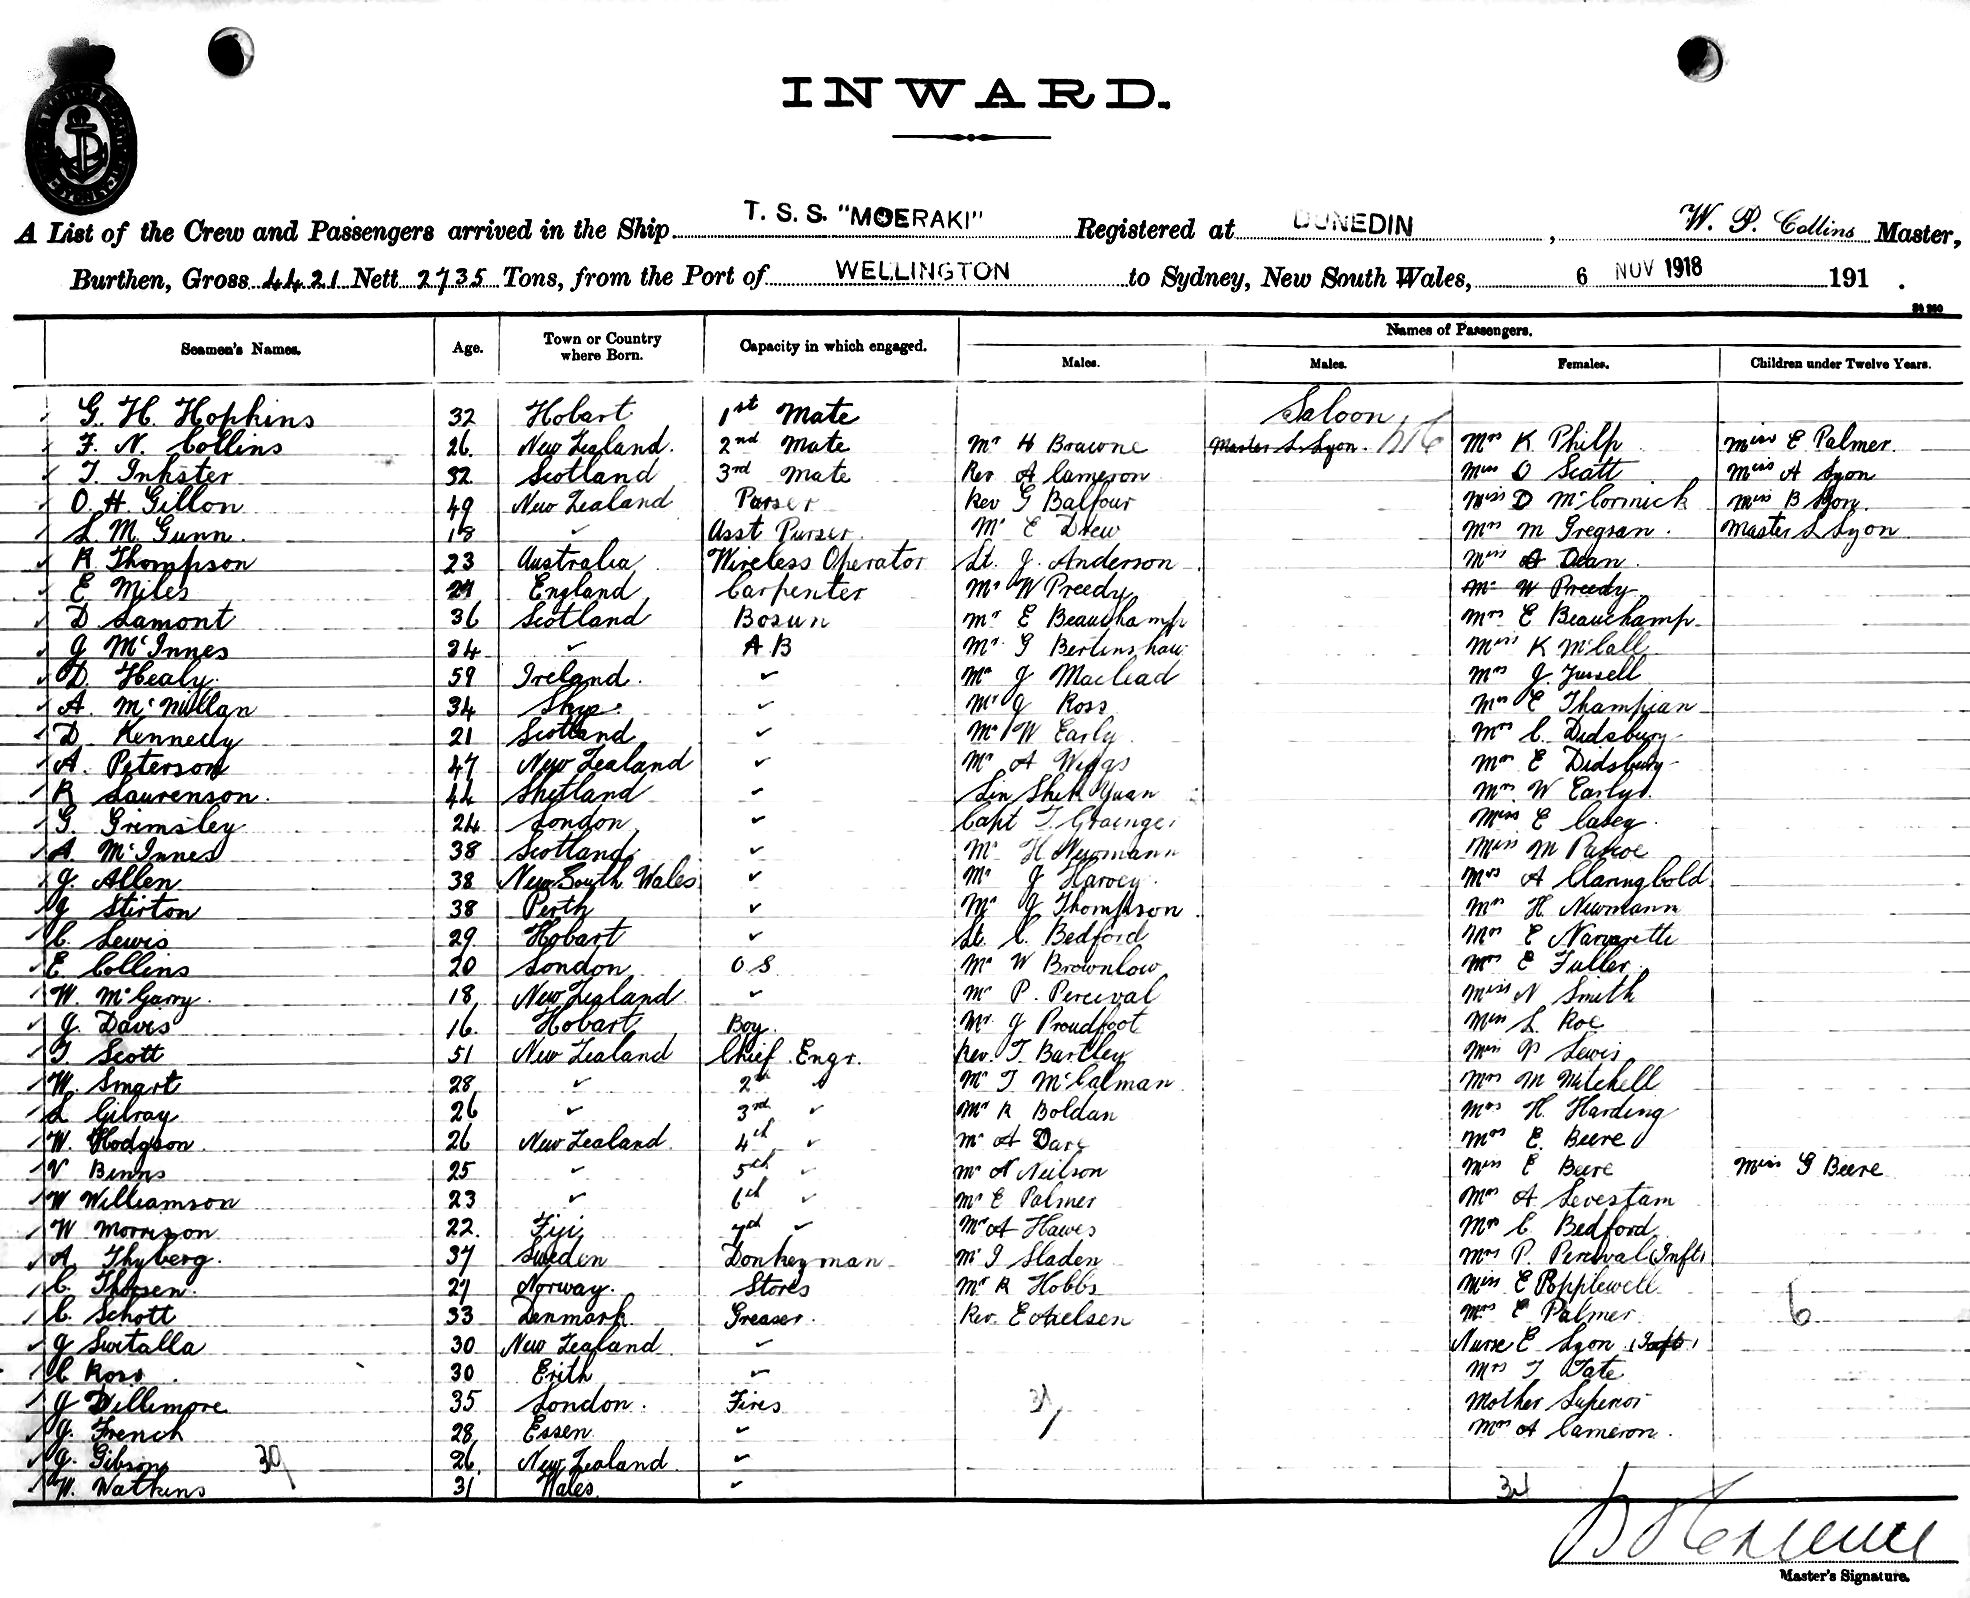 INWARD.
A List of the Crew and Passengers arrived in the Ship T. S. S. "MOERAKI" Registered at DUNEDIN, W. P. Collins Master,
Burthen, Gross 4421 Nett 2735 Tons, from the Port of WELLINGTON to Sydney, New South Wales, 6 NOV 1918 191 .
Names of Passengers.
Seamen's Names. Age. Town or Country where Born. Capacity in which engaged. Males. Males. Females. Children under Twelve Years.
G. H. Hopkins 32 Hobart 1st Mate Saloon
F. N. Collins 26 New Zealand. 2nd Mate Mr H Browne Master L Lyon. Mrs K Philp Miss E Palmer.
T. Inkster 32 Scotland 3rd Mate Rev A Cameron Miss O Scott Miss A Lyon
O. H. Gillon 49 New Zealand Purser Rev G Balfour Miss D McCormick Miss B Lyon.
L M. Gunn. 18 ✓ Asst Purser. Mr E Drew Mrs M Gregson. Master L Lyon
R Thompson 23 Australia Wireless Operator Lt. J. Anderson Miss A Dean.
E Miles 29 England Carpenter Mr W Preedy Mr W Preedy
D Lamont 36 Scotland Bosun Mr E Beauchamp Mrs E Beauchamp
J McInnes 34 ✓ A B Mr G Bertinshaw Miss K McCall
D. Healy. 59 Ireland. ✓ Mr J Macleod Mrs J. Jussell
A. McMillan 34 Skye. ✓ Mr J Ross Mrs E Thompson
D Kennedy 21 Scotland ✓ Mr W Early Mrs C. Didsbury
A. Peterson 47 New Zealand ✓ Mr A Wiggs Mrs E Didsbury
R Laurenson. 44 Shetland ✓ Lin Shek Yuan Mrs W Early
G. Grimsley 24 London ✓ Capt T. Grainger Miss E Casey.
A. McInnes 38 Scotland ✓ Mr H Newmann Miss M Pascoe
J. Allen 38 New South Wales ✓ Mr J Harvey Mrs A Claringbold
J Stirton 38 Perth ✓ Mr J Thompson Mrs H. Newmann
C. Lewis 29 Hobart ✓ Lt. C. Bedford Mrs E
E Collins 20 London O S Mr W Brownlow Mrs E Fuller
W. McGarry. 18 New Zealand ✓ Mr P. Percival Miss N Smith
J. Davis 16. Hobart Boy. Mr J Proudfoot Miss L Roe
T Scott 51 New Zealand Chief Engr. Rev. T Bartley Miss P Lewis
W. Smart 28 ✓ 2nd ✓ Mr T McCalman Mrs M Mitchell
L Gilray 26 ✓ 3rd ✓ Mr R Boldan Mrs H. Harding
W. Hodgson. 26 New Zealand 4th ✓ Mr A Dare Mrs E. Beere
V Binns 25 ✓ 5th ✓ Mr N Neilson Miss E Beere Miss G Beere
W Williamson 23 ✓ 6th ✓ Mr E Palmer Mrs A Levestam
W Morrison 22. Fiji 7th ✓ Mr A Hawes Mrs C. Bedford
A Thyberg. 37 Sweden Donkeyman Mr J Sladen Mrs P. Percival (Inft)
C. Thorsen. 27 Norway. Stores Mr R Hobbs Miss E Popplewell
C. Schott 33 Denmark Greaser. Rev. E Axelsen Mrs E Palmer 6
J Suitalla 30 New Zealand ✓ Nurse E Lyon (Inft)
C Ross. 30 Erith ✓ Mrs T Tate
J Dellimore 35 London. Fires 31 Mother Superior
J. French 28 Essen ✓ Mrs A Cameron.
J. Gibson 39 26 New Zealand ✓
W. Watkins 31 Wales. ✓
Master's Signature.